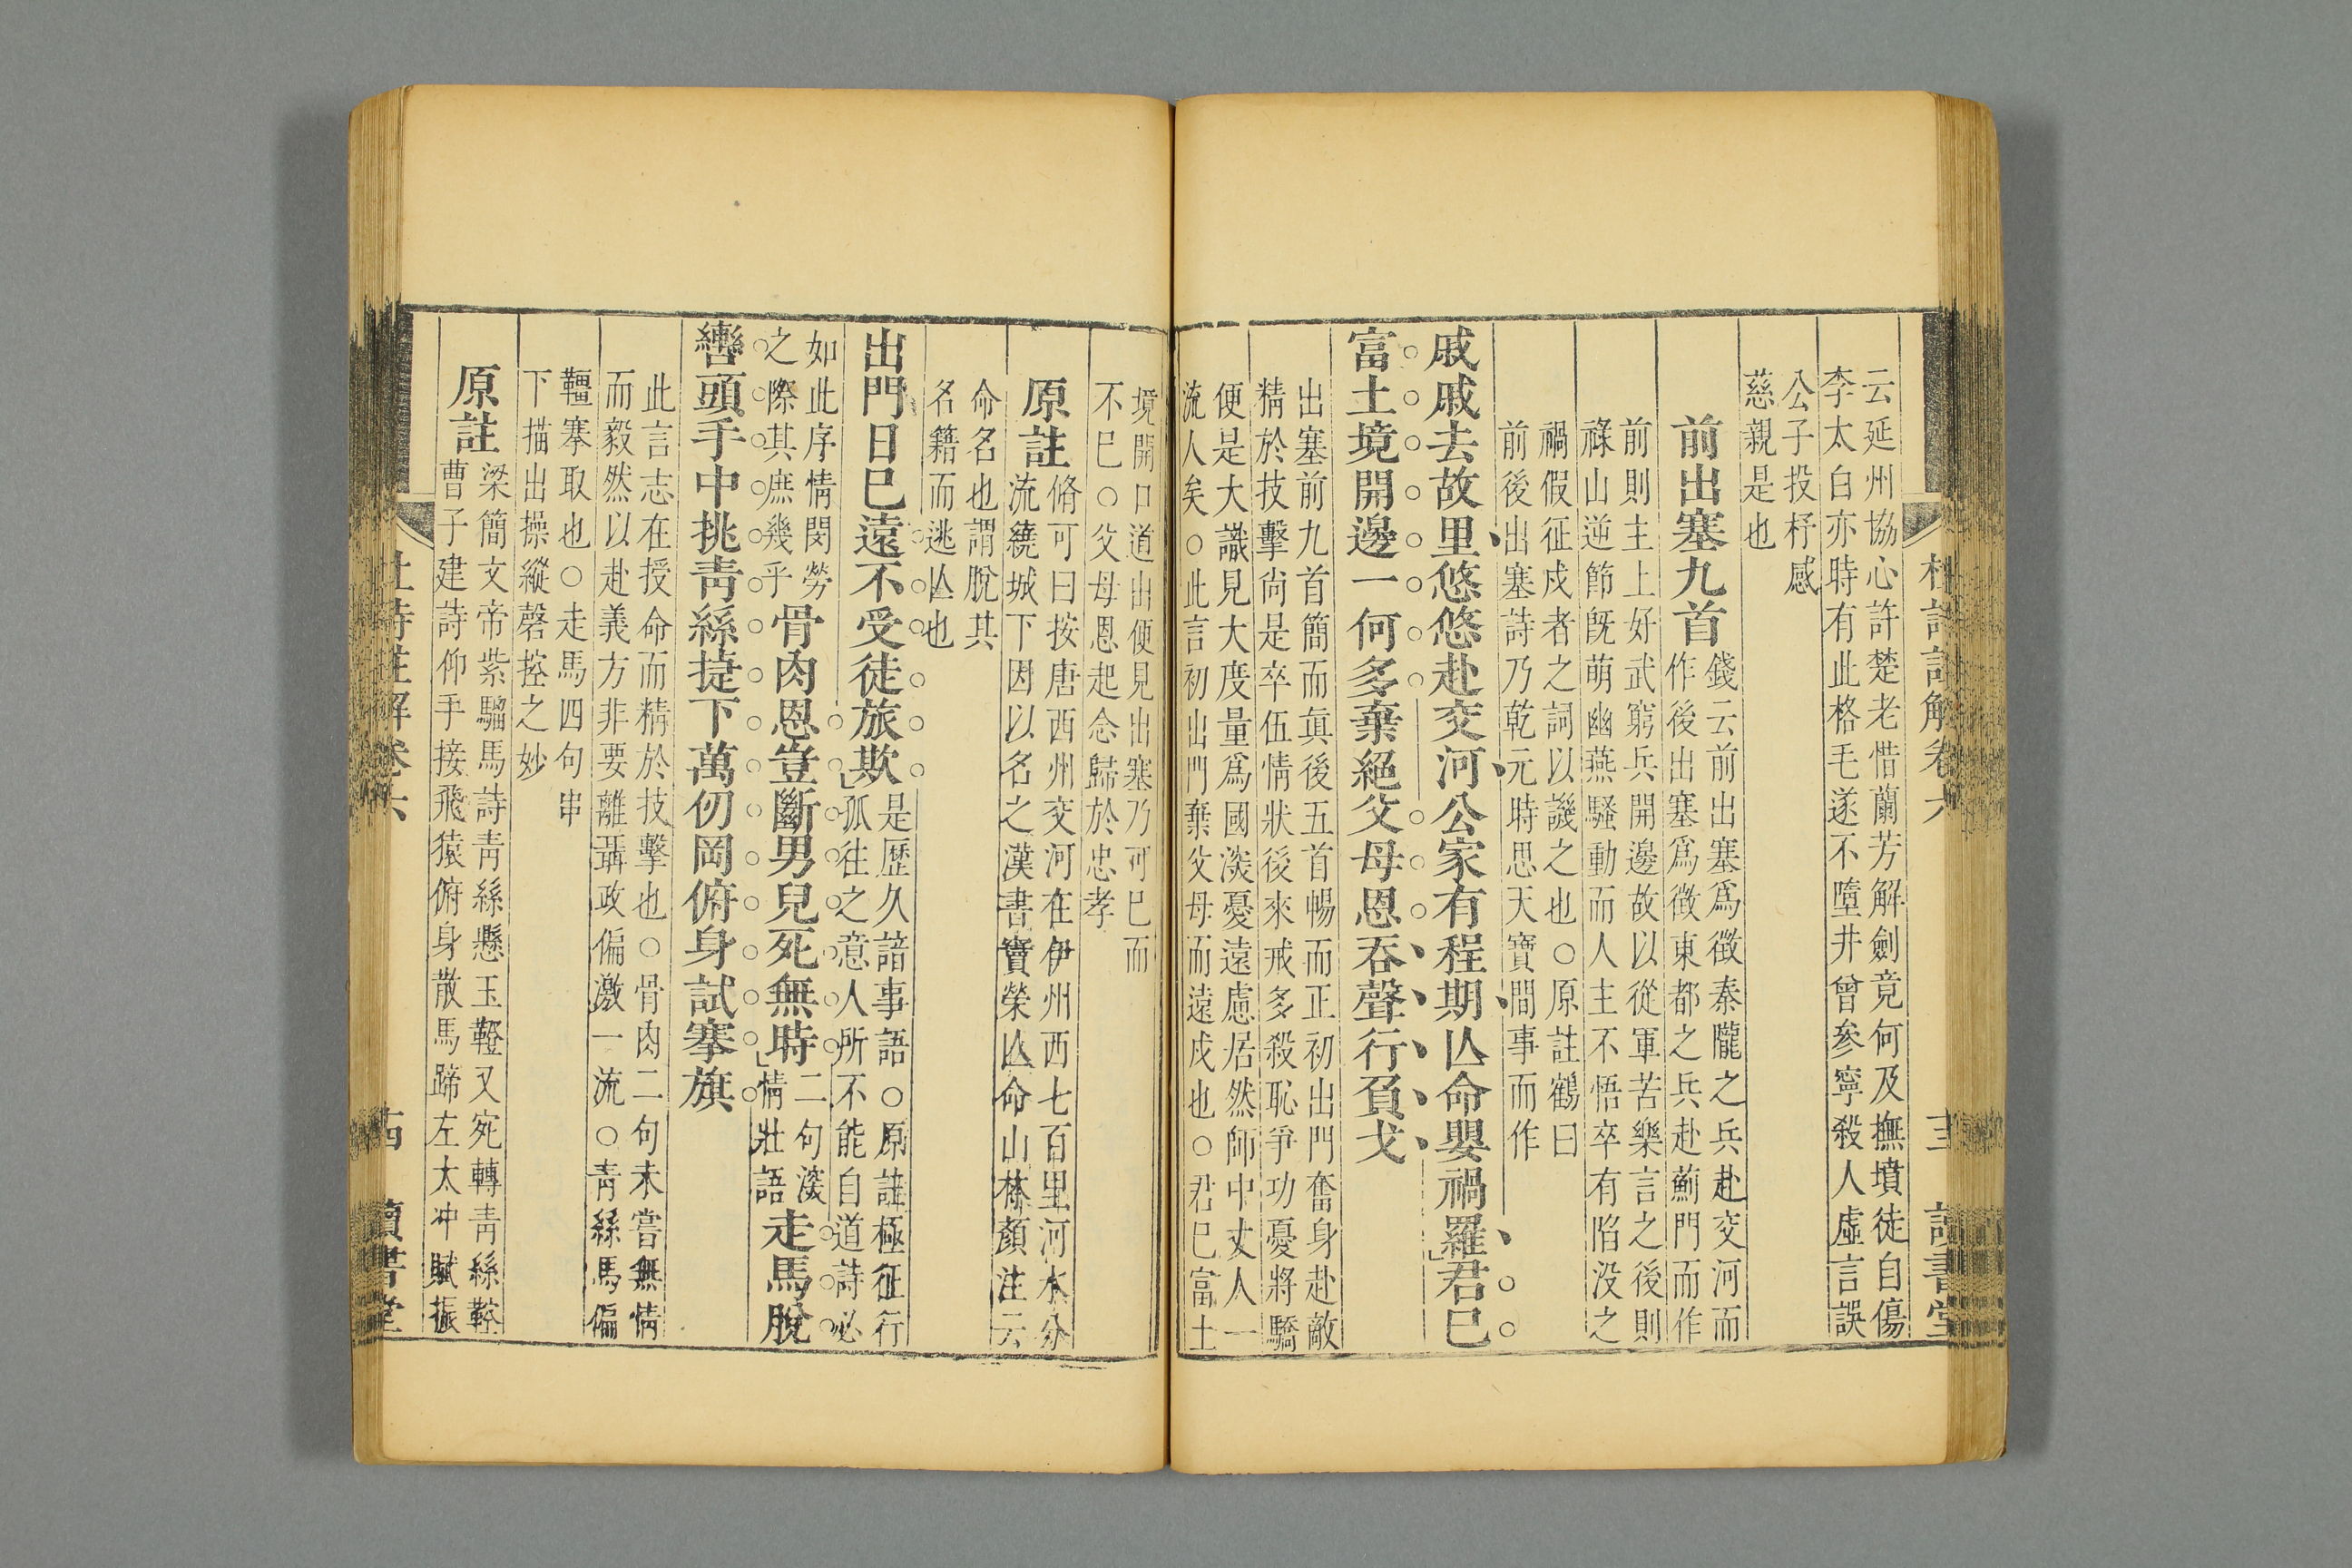 云延州協心許楚老惜蘭芳解劍竟何及撫墳徒自傷
李太白亦時有此格毛遂不墮井曾參寧殺人虛言誤
公子投杼感
慈親是也
前出塞九首
錢云前出塞爲徵秦隴之兵赴交河而
作後出塞爲徵東都之兵赴薊門而作
前則主上好武窮兵開邊故以從軍苦樂言之後則
祿山逆節旣萌幽燕騷動而人主不悟卒有陷没之
禍假征戍者之詞以譏之也○原註鶴曰
前後出塞詩乃乾元時思天寶間事而作
戚戚去故里悠悠赴交河公家有程期亾命嬰禍羅君巳
富土境開邊一何多棄絕父母恩吞聲行負戈
出塞前九首簡而眞後五首暢而正初出門奮身赴敵
精於技擊尙是卒伍情狀後來戒多殺恥爭功憂將驕
便是大識見大度量爲國深憂遠慮居然師中丈人一
流人矣○此言初出門棄父母而遠戍也○君巳富土
境開口道出便見出塞乃可巳而
不巳○父母恩起念歸於忠孝
原註
脩可曰按唐西州交河在伊州西七百里河水分
流繞城下因以名之漢書竇榮亾命山林顏注云
命名也謂脫其
名籍而逃亾也
出門日已遠不受徒旅欺
是歷久諳事語○原註極征行
孤往之意人所不能自道詩必
如此序情閔勞
之際其庶幾乎
骨肉恩豈斷男兒死無時
二句深
情壯語
走馬脫
轡頭手中挑青絲㨗下萬仞岡俯身試搴旗
此言志在授命而精於技擊也○骨肉二句未嘗無情
而毅然以赴義方非要離聶政偏激一流○青絲馬偏
韁搴取也○走馬四句串
下描出操縱磬控之妙
原註
梁簡文帝紫騮馬詩青絲懸玉鞚又宛轉青絲鞚
曹子建詩仰手接飛猿俯身散馬蹄左太冲賦振
杜詩註解卷六
十三
讀書堂
杜詩註解卷六
十四
讀書堂